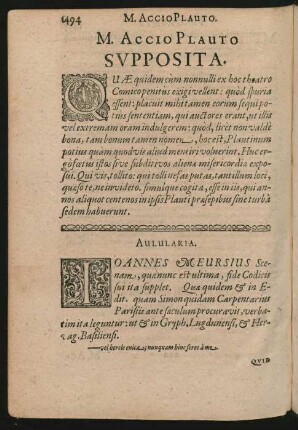 494 M. ACCIO PLAUTO.
M. ACCIO PLAUTO
SVPPOSITA.
QUÆ quidem cùm nonnulli ex hoc theatro
Comico penitus exigi vellent: quòd spuria
essent: placuit mihi tamen eorum sequi po-
tius sententiam, qui auctores erant, ut illis
vel extremam oram indulgerem: quòd, licet non valdè
bona, tam bonum tamen nomen, hoc est, Plautinum
potius quàm quodvis aliud meruri voluerint. Huc er-
gò fœtus istos sive subditivos aliena misericordia expo-
sui. Qui vis, tollito: qui tollinefas putas, tantillum loci,
quæso te, ne invideto, simulque cogita, esse in iis, qui an-
nos aliquot centenos in ipsis Plauti præsepibus sine turbâ
sedem habuerunt.
AULULARIA.
IOANNES MEURSIUS Sce-
nam, quæ nunc est ultima, fide Codicis
sui ita supplet. Qua quidem & in E-
dit. quam Simon quidam Carpentarius
Parisiis ante sæculum procuravit, verba-
tim ita leguntur: ut & in Gryph. Lugdunensi, & Her-
vag. Basiliensi.
vel hercle enica, nunquam hinc feres à me
QUID